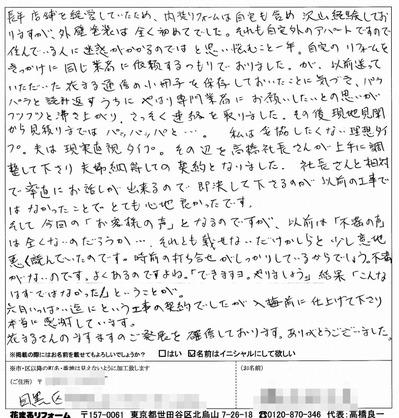 長年店舗を経営していたため、内装リフォームは自宅も含め沢山経験してお
りますが、外壁塗装は全く初めてでした。それも自宅外のアパートですので
住んでいる人に迷惑がかかるのではと思い悩むこと一年。自宅のリフォームを
きっかけに同じ業者に依頼するつもりでおりました。が、以前送って
いただいた花まる通信の小冊子を保存しておいたことに気づき、パラ
パラと読み返すうちにやはり専門業者にお願いしたいとの思いが
フツフツと沸き上がり、さっそく連絡を取りました。その後現地見聞
から見積り書まではパッパッパッと…。 私は妥協したくない理想タイ
プ。夫は現実直視タイプ。その辺を高橋社長さんが上手に調
整して下さり夫婦納得しての契約となりました。 社長さんと相対
で率直にお話しが出来るので即決して下さるのが以前の工事で
はなかったことでとても心地良かったです。
そして今回の「お客様の声」となるのですが、以前は「不満の声
は全くないのだろうか…、それとも載せないだけかしらと少し意地
悪く読んでいたのです。時前の打ち合せがしっかりしているからでしょう。不満
がないのです。よくあるのですよね。「できますヨ。やりましょう」結果「こんな
はずではなかった!」ということが。
六月いっぱい迄にという工事の契約でしたが入梅前に仕上げて下さり
本当に感謝しています。
花まるさんのますますのご発展を確信しております。ありがとうございました。
※掲載の際にはお名前を載せてもよろしいでしょうか? □はい ☑名前はイニシャルにして欲しい
※市・区以降の町名・番地は見えないように加工致します
(ご住所) 〒 (お名前)
目黒区
花まるリフォーム 〒157-0061 東京都世田谷区北烏山7-26-18 0120-870-346 代表:高橋良一